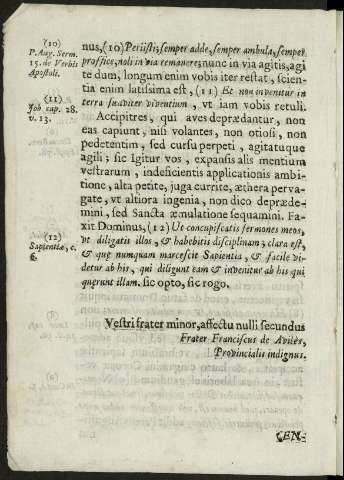 (10)
P. Aug. Serm.
15. de Verbis
Apostoli.
(11)
Job cap. 28.
v. 13.
(12)
Sapientiæ, c.
6.
nus, (10) Periisti; semper adde, semper ambula, semper
proffice, noli in via remanere; nunc in via agitis, agi
te dum, longum enim vobis iter restat, scien-
tia enim latissima est, (11) Et non invenitur in
terra suaviter viventium, vt iam vobis retuli.
Accipitres, qui aves deprædantur, non
eas capiunt, nisi volantes, non otiosi, non
pedetentim, sed cursu perpeti, agitatuque
agili; sic Igitur vos, expansis alis mentium
vestrarum, indeficientis applicationis ambi-
tione, alta petite, juga currite, æthera perva-
gate, vt altiora ingenia, non dico depræde-
mini, sed Sancta æmulatione sequamini. Fa-
xit Dominus, (12) Ut concupiscatis sermones meos,
vt diligatis illos, & habebitis disciplinam; clara est,
& quæ numquam marcescit Sapientia, & facile vi-
detur ab his, qui diligunt eam & invenitur ab his qui
quærunt illam. sic opto, sic rogo.
Vestri frater minor, affectu nulli secundus
Frater Franciscus de Avilès,
Provincialis indignus.
CEN-